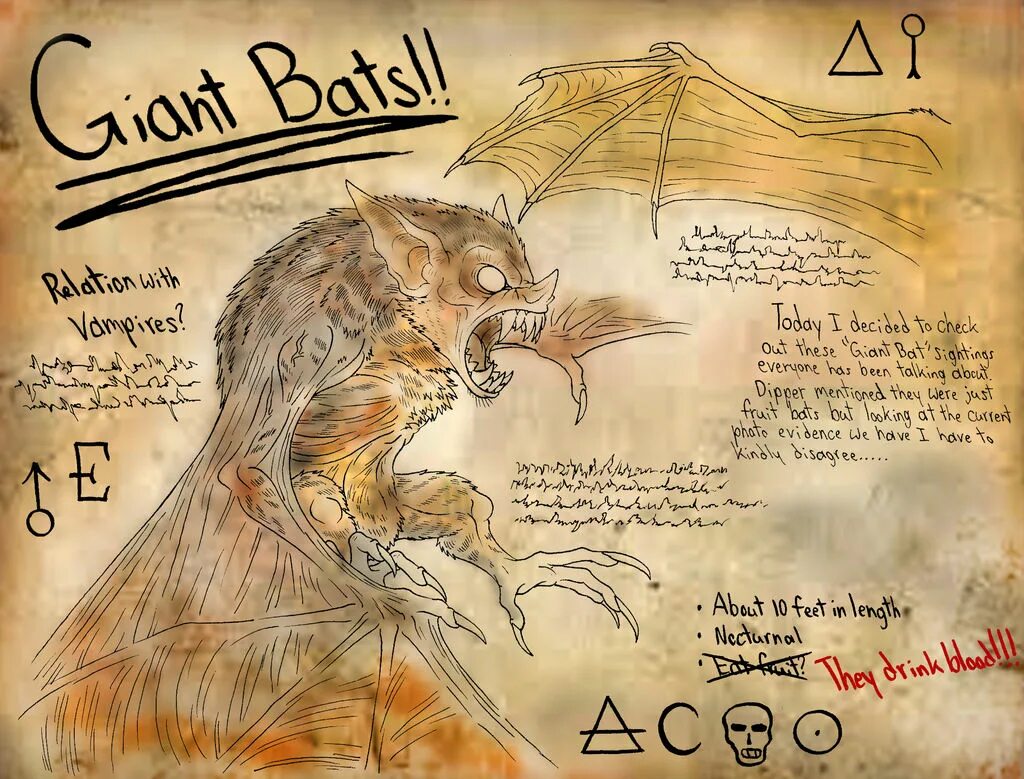 Giant Bats!!
Relation with
Vampires?
E
Today I decided to check
out these "Giant Bat" sightings
everyone has been talking about.
Dipper mentioned they were just
fruit bats but looking at the current
photo evidence we have I have to
kindly disagree.....
• About 10 feet in length
• Nocturnal
• Eat fruit? They drink blood!!!